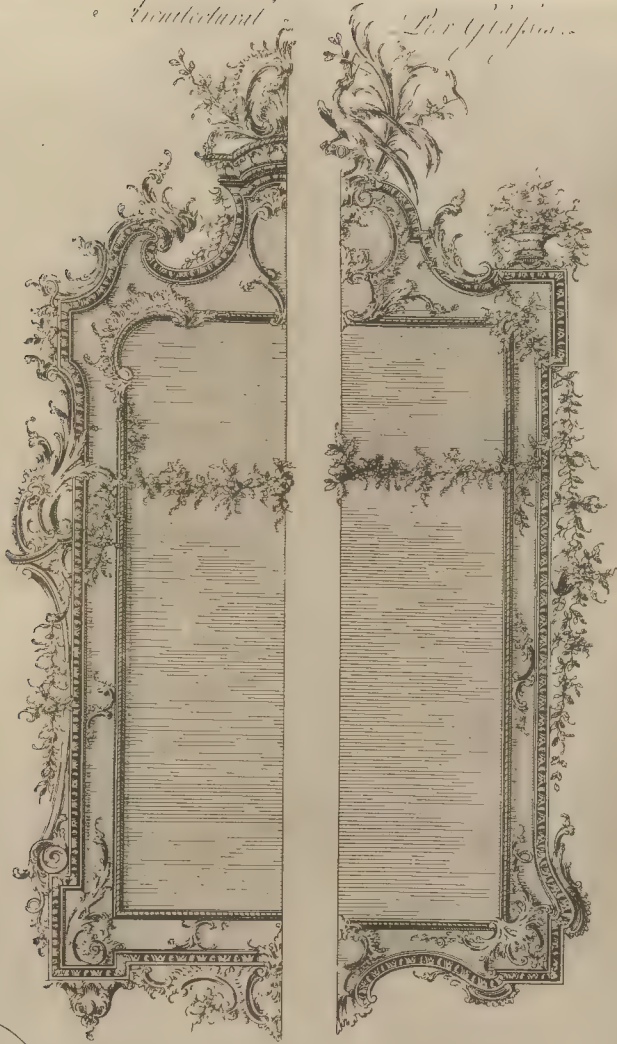 Architectural Pier Glasses.